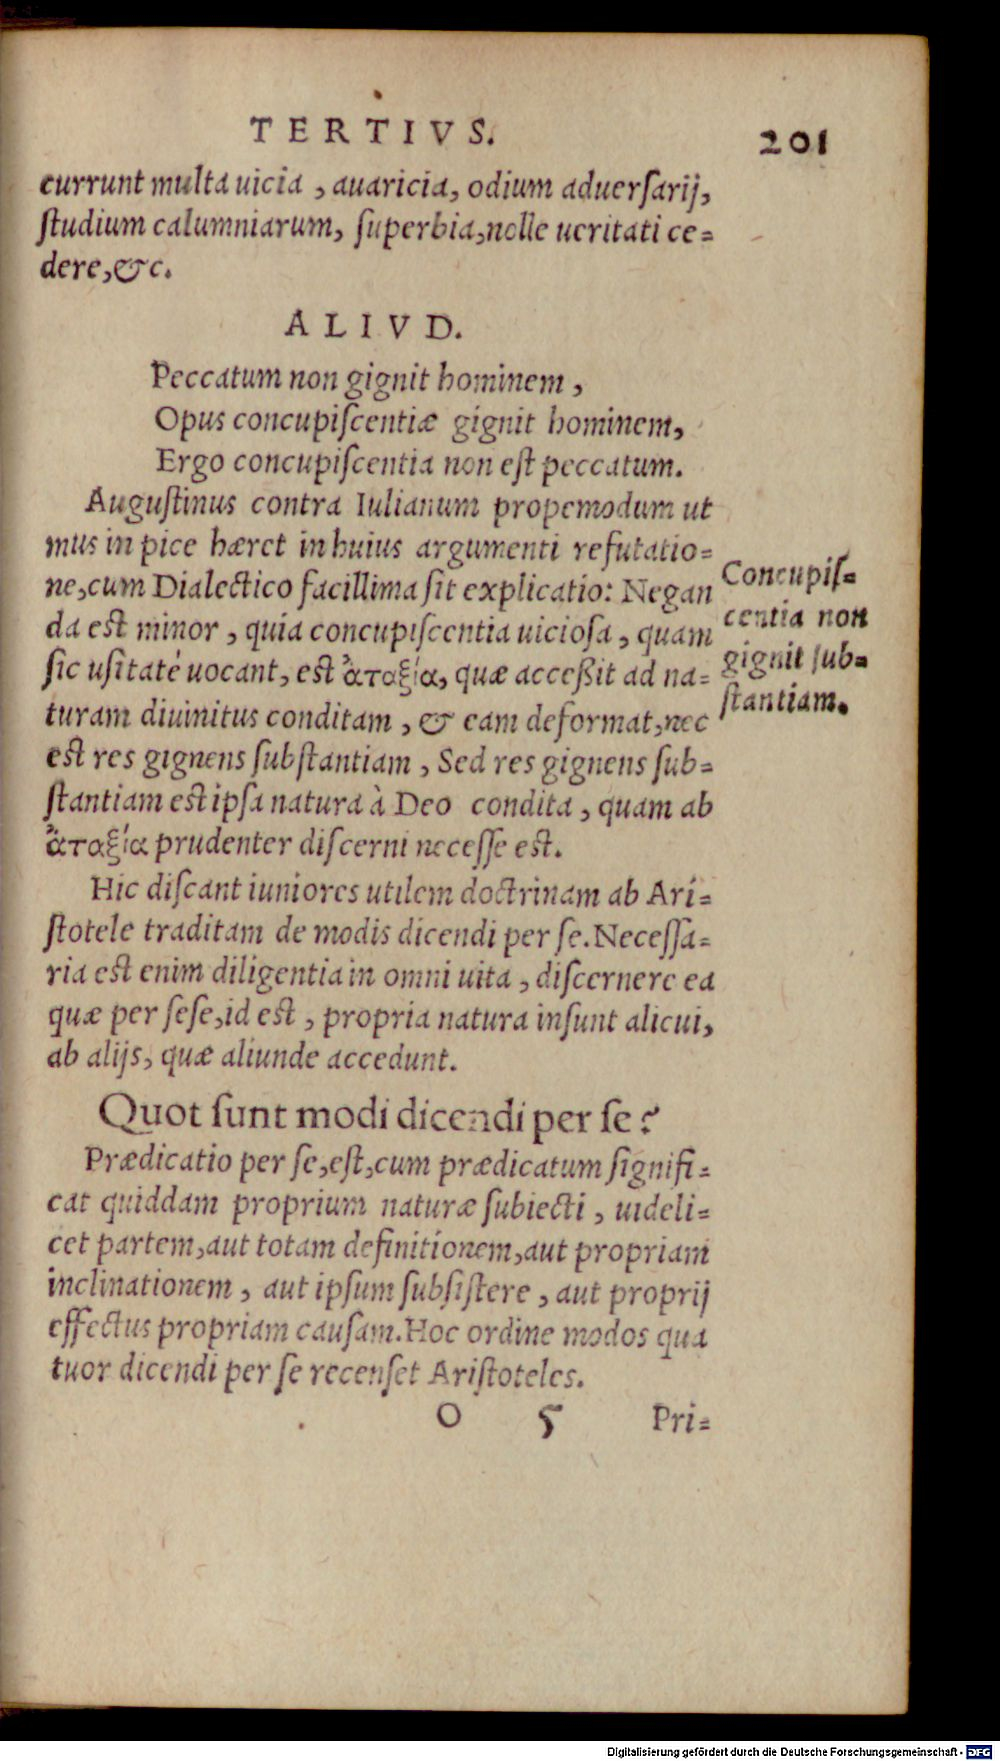 TERTIVS. 201
currunt multa uicia, auaricia, odium aduersarij,
studium calumniarum, superbia, nolle ueritati ce=
dere, &c.
ALIVD.
Peccatum non gignit hominem,
Opus concupiscentiæ gignit hominem,
Ergo concupiscentia non est peccatum.
Augustinus contra Iulianum propemodum ut
mus in pice hæret in huius argumenti refutatio=
ne, cum Dialectico facillima sit explicatio: Negan
da est minor, quia concupiscentia uiciosa, quam
sic usitatè uocant, est ἀταξία, quæ acceßit ad na=
turam diuinitus conditam, & eam deformat, nec
est res gignens substantiam, Sed res gignens sub=
stantiam est ipsa natura à Deo condita, quam ab
ἀταξία prudenter discerni necesse est.
Concupis=
centia non
gignit sub=
stantiam.
Hic discant iuniores utilem doctrinam ab Ari=
stotele traditam de modis dicendi per se. Necessa=
ria est enim diligentia in omni uita, discernere ea
quæ per sese, id est, propria natura insunt alicui,
ab alijs, quæ aliunde accedunt.
Quot sunt modi dicendi per se?
Prædicatio per se, est, cum prædicatum signifi=
cat quiddam proprium naturæ subiecti, uideli=
cet partem, aut totam definitionem, aut propriam
inclinationem, aut ipsum subsistere, aut proprij
effectus propriam causam. Hoc ordine modos qua
tuor dicendi per se recenset Aristoteles.
O 5 Pri=
Digitalisierung gefördert durch die Deutsche Forschungsgemeinschaft - DFG